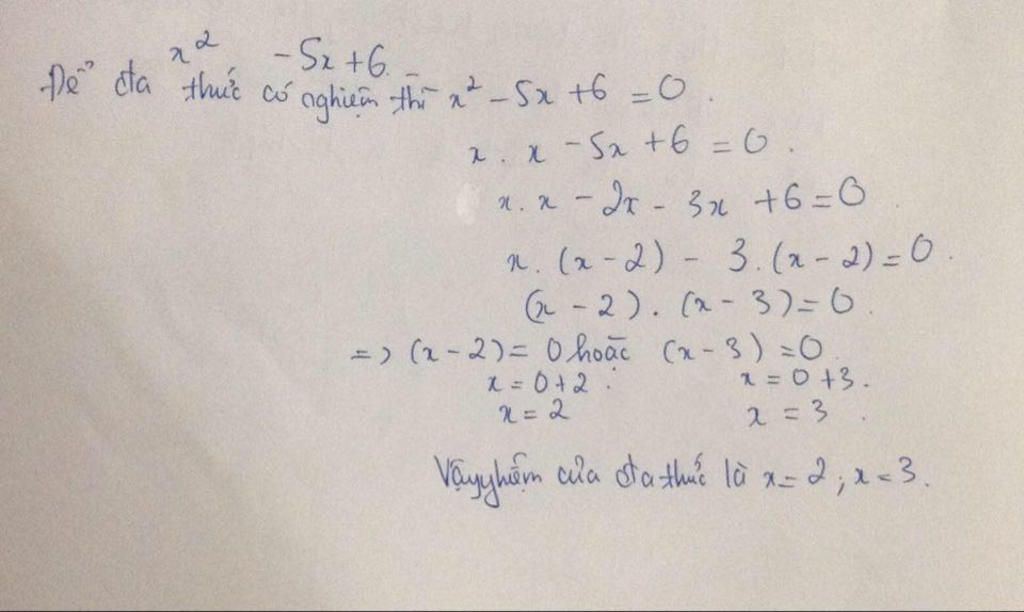 x² -5x+6
Để đa thức có nghiệm thì x² - 5x + 6 = 0.
x . x - 5x + 6 = 0.
x . x - 2x - 3x + 6 = 0.
x . (x - 2) - 3 . (x - 2) = 0.
(x - 2) . (x - 3) = 0.
=> (x - 2) = 0 hoặc (x - 3) = 0.
x = 0 + 2. x = 0 + 3.
x = 2 x = 3.
Vậy của đa thức là x = 2 ; x = 3.